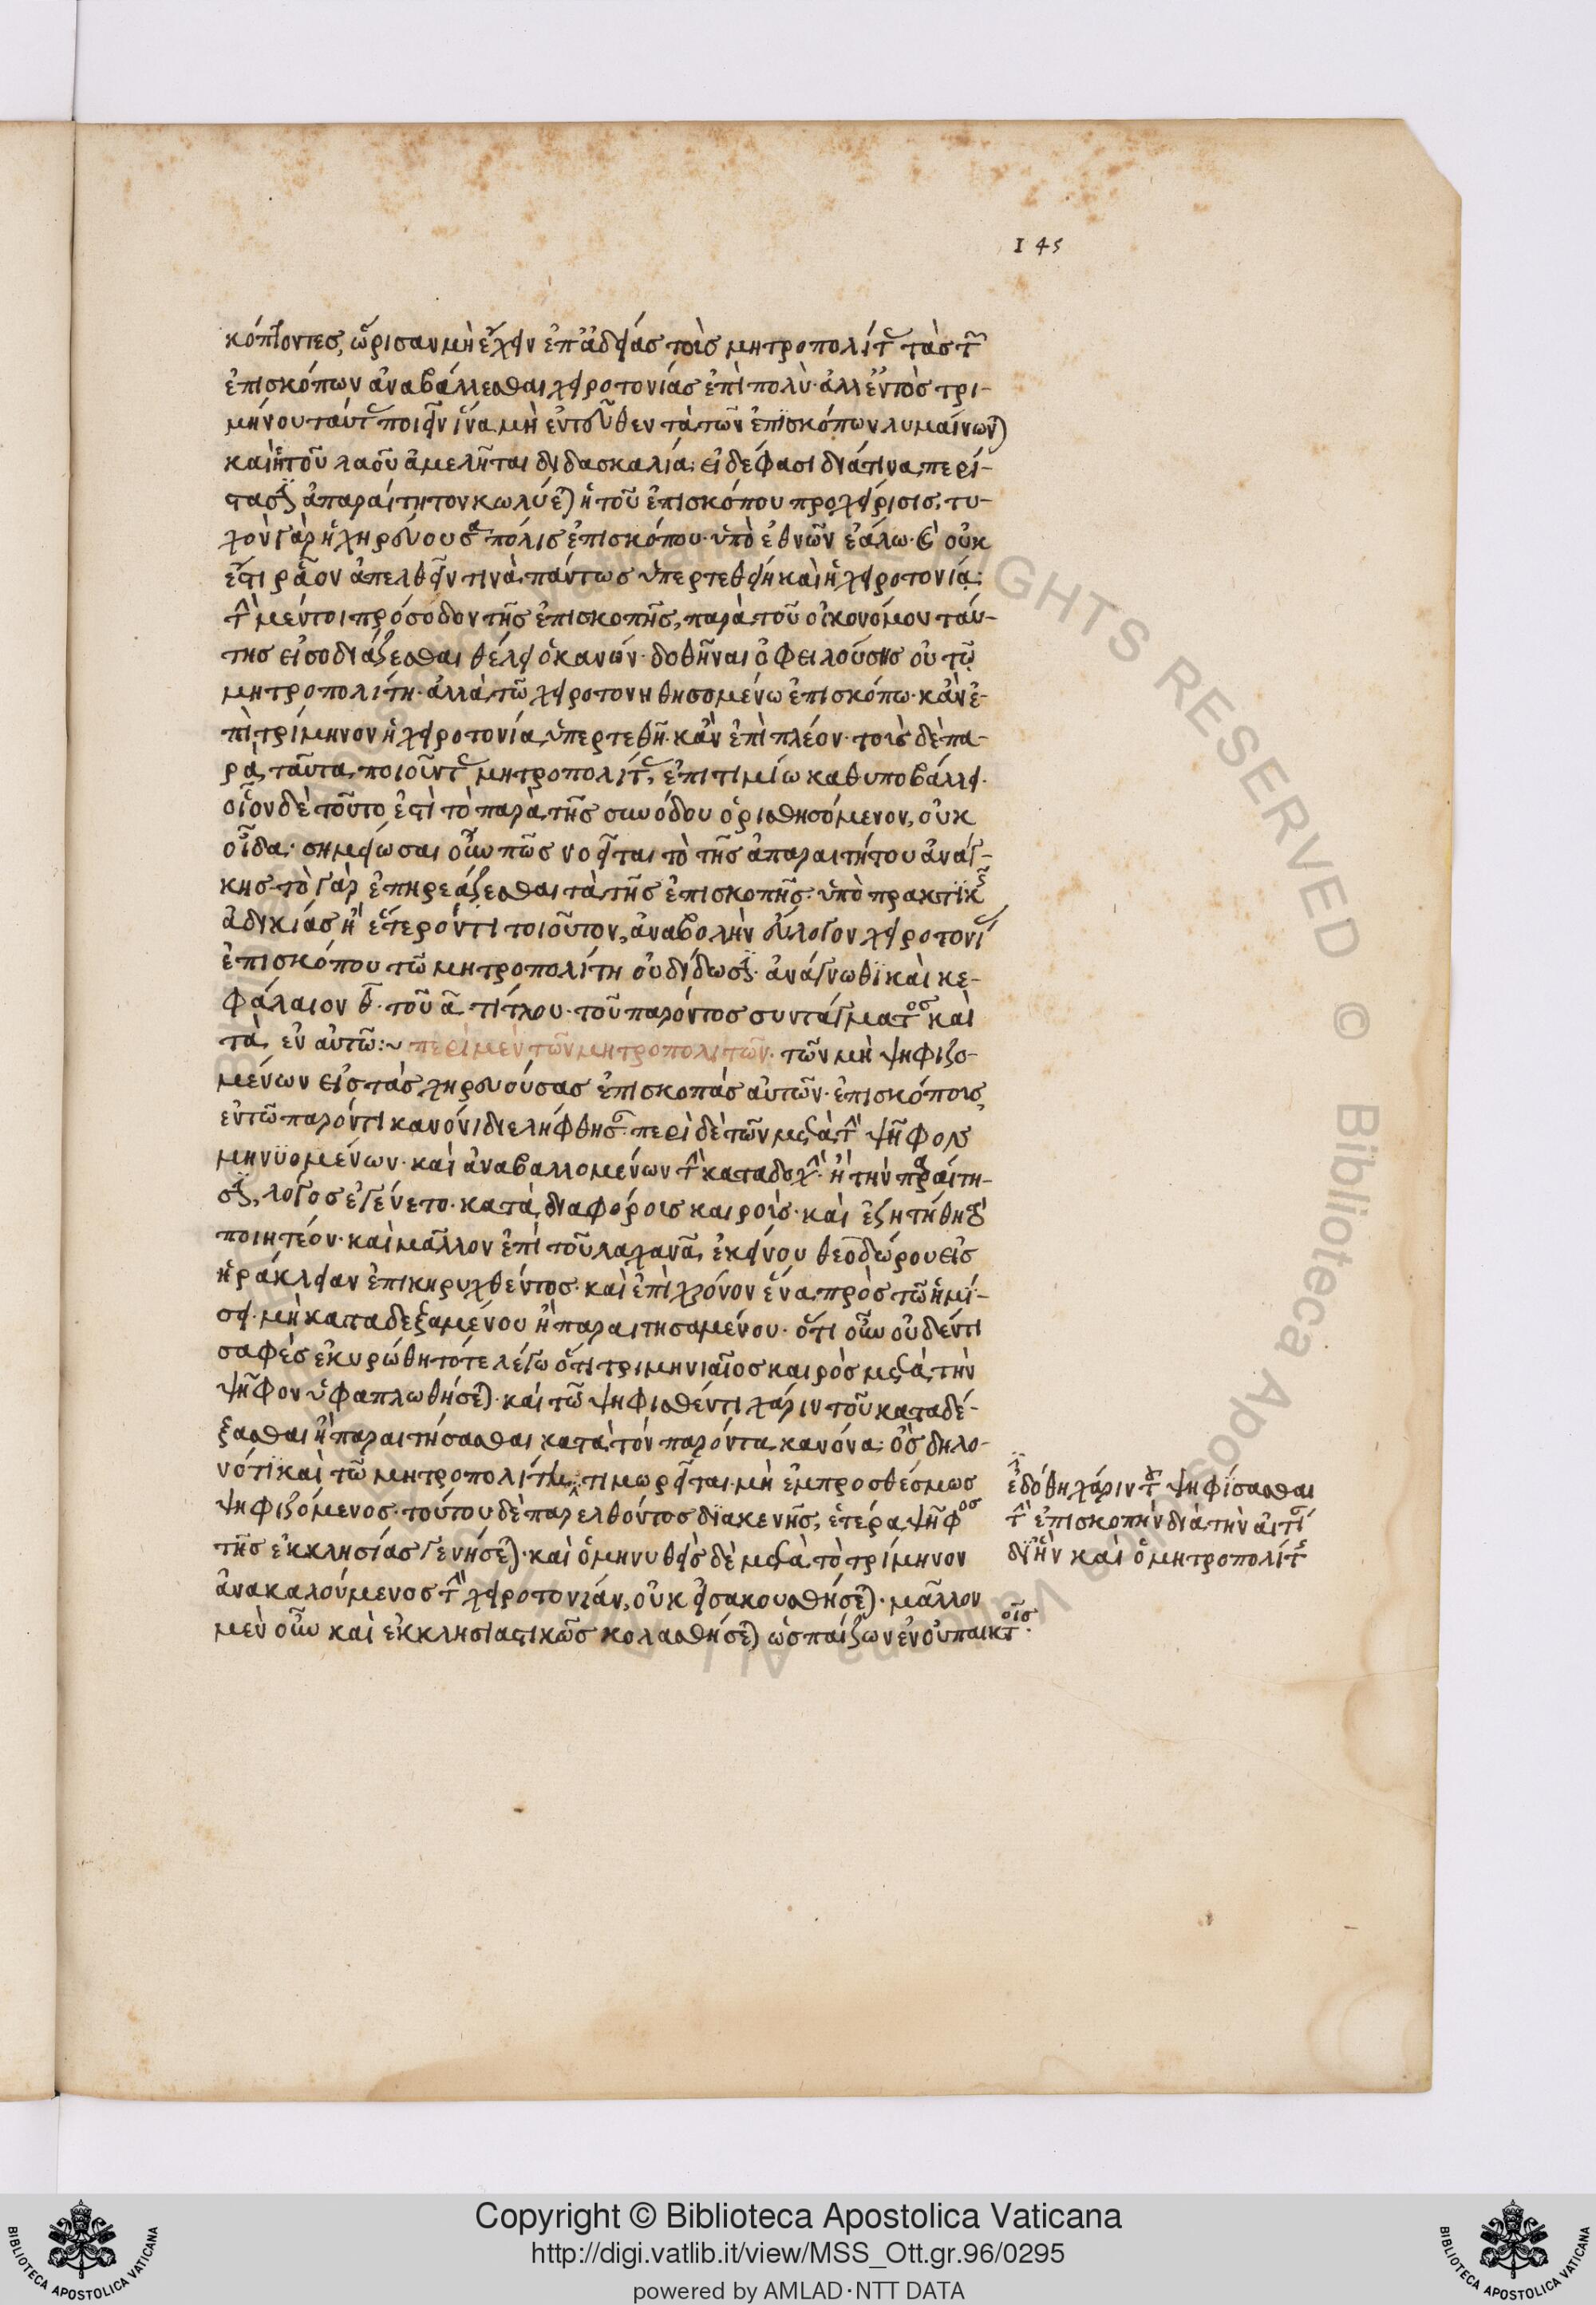 145
κόπτοντες, ὥρισαν μὴ ἔχειν ἐπ' ἀδείας τοῖς μητροπολίτ τὰς τ
ἐπισκόπων ἀναβάλλεσθαι χειροτονίας ἐπὶ πολύ· ἀλλ' ἐντὸς τρι-
μήνου ταύτ ποιεῖν ἵνα μὴ ἐντεῦθεν τὰ τῶν ἐπϊσκόπων λυμαίνων)
καὶ ἡ τοῦ λαοῦ ἀμελῆται διδασκαλία· εἰ δέ φασι διά τινα περί-
στασιν ἀπαραίτητον κωλύε) ἡ τοῦ ἐπισκόπου προχείρισις, τυ-
χὸν γὰρ ἡ χηρεύουσα πόλις ἐπισκόπου· ὑπὸ ἐθνῶν ἑάλω· καὶ οὐκ
ἔστι ρᾷον ἀπελθεῖν τινὰ πάντως ὑπερτεθείη καὶ ἡ χειροτονία·
τὴν μέντοι πρόσοδον τῆς ἐπισκοπῆς, παρὰ τοῦ οἰκονόμου ταύ-
της εἰσοδιάζεσθαι θέλει ὁ κανών· δοθῆναι ὀφειλούσης οὐ τῷ
μητροπολίτη· ἀλλὰ τῶ χειροτονηθησομένω ἐπισκόπω· κἂν ἐ-
πὶ τρίμηνον ἡ χειροτονία ὑπερτεθῆ· κἂν ἐπὶ πλέον· τοὶς δὲ πα-
ρὰ ταῦτα ποιοῦντ μητροπολίτ, ἐπιτιμίω καθυποβάλλει·
οἷον δὲ τοῦτο ἐστὶ τὸ παρὰ τῆς συνόδου ὁρισθησόμενον, οὐκ
οἶδα· σημείωσαι οὖν πῶς νοεῖται τὸ τῆς ἀπαραιτήτου ἀνάγ-
κης· τὸ γὰρ ἐπηρεάζεσθαι τὰ τῆς ἐπισκοπῆς· ὑπὸ πρακτϊκ
ἀδικίας ἢ ἕτερόν τι τοιοῦτον, ἀναβολὴν εὔλογον χειροτονί
ἐπισκόπου τῶ μητροπολίτη οὐ δίδωσιν· ἀνάγνωθϊ καὶ κε-
φάλαιον θ· τοῦ α τίτλου· τοῦ παρόντος συντάγματος καὶ
τὰ ἐν αὐτῶ:~ περὶ μὲν τῶν μητροπολιτῶν· τῶν μὴ ψηφιζο-
μένων εἰς τὰς χηρευούσας ἐπισκοπὰς αὐτῶν· ἐπισκόποις,
ἐν τῶ παρόντι κανόνι διελήφθησ· περὶ δὲ τῶν μετὰ τὴν ψῆφον
μηνϋομένων· καὶ ἀναβαλλομένων τὴν καταδοχὴν· ἢ τὴν παραίτη-
σιν, λόγος ἐγένετο· κατὰ διαφόροις καιροῖς· καὶ ἐζητήθη
ποιητέον· καὶ μᾶλλον ἐπὶ τοῦ λαχανᾶ ἐκείνου θεοδώρου εἰς
ἡράκλειαν ἐπικηρυχθέντος· καὶ ἐπὶ χρόνον ἕνα πρὸς τῶ ἡμί-
σει· μὴ καταδεξαμένου ἢ παραιτησαμένου· ὅτι οὖν οὐδέν τι
σαφὲς ἐκυρώθη τότε λέγω ὅτι τριμηνιαῖος καιρὸς μετὰ τὴν
ψῆφον ὑφαπλωθήσε)· καὶ τῶ ψηφισθέντι χάριν τοῦ καταδέ-
ξασθαι ἢ παραιτήσασθαι κατὰ τὸν παρόντα κανόνα· ὃς δηλο-
νότϊ καὶ τῶ μητροπολίτη, τιμωρεῖται· μὴ ἐμπροσθέσμως
ψηφιζόμενος· τούτου δὲ παρελθόντος διακενῆς, ἑτέρα ψῆφος
τῆς ἐκκλησίας γενήσε)· καὶ ὁ μηνυθεὶς δὲ μετὰ τὸ τρίμηνον
ἀνακαλούμενος τὴν χειροτονίαν, οὐκ εἰσακουσθήσε)· μᾶλλον
μὲν οὖν καὶ ἐκκλησιαστικῶς κολασθήσε) ὡς παίζων ἐν οὐ παικτοῖς·
ἐδόθη χάριν τ ψηφίσασθαι
τὴν ἐπισκοπὴν διὰ τὴν αἰτί
δι' ἣν καὶ ὁ μητροπολίτ
Copyright © Biblioteca Apostolica Vaticana
http://digi.vatlib.it/view/MSS_Ott.gr.96/0295
powered by AMLAD·NTT DATA